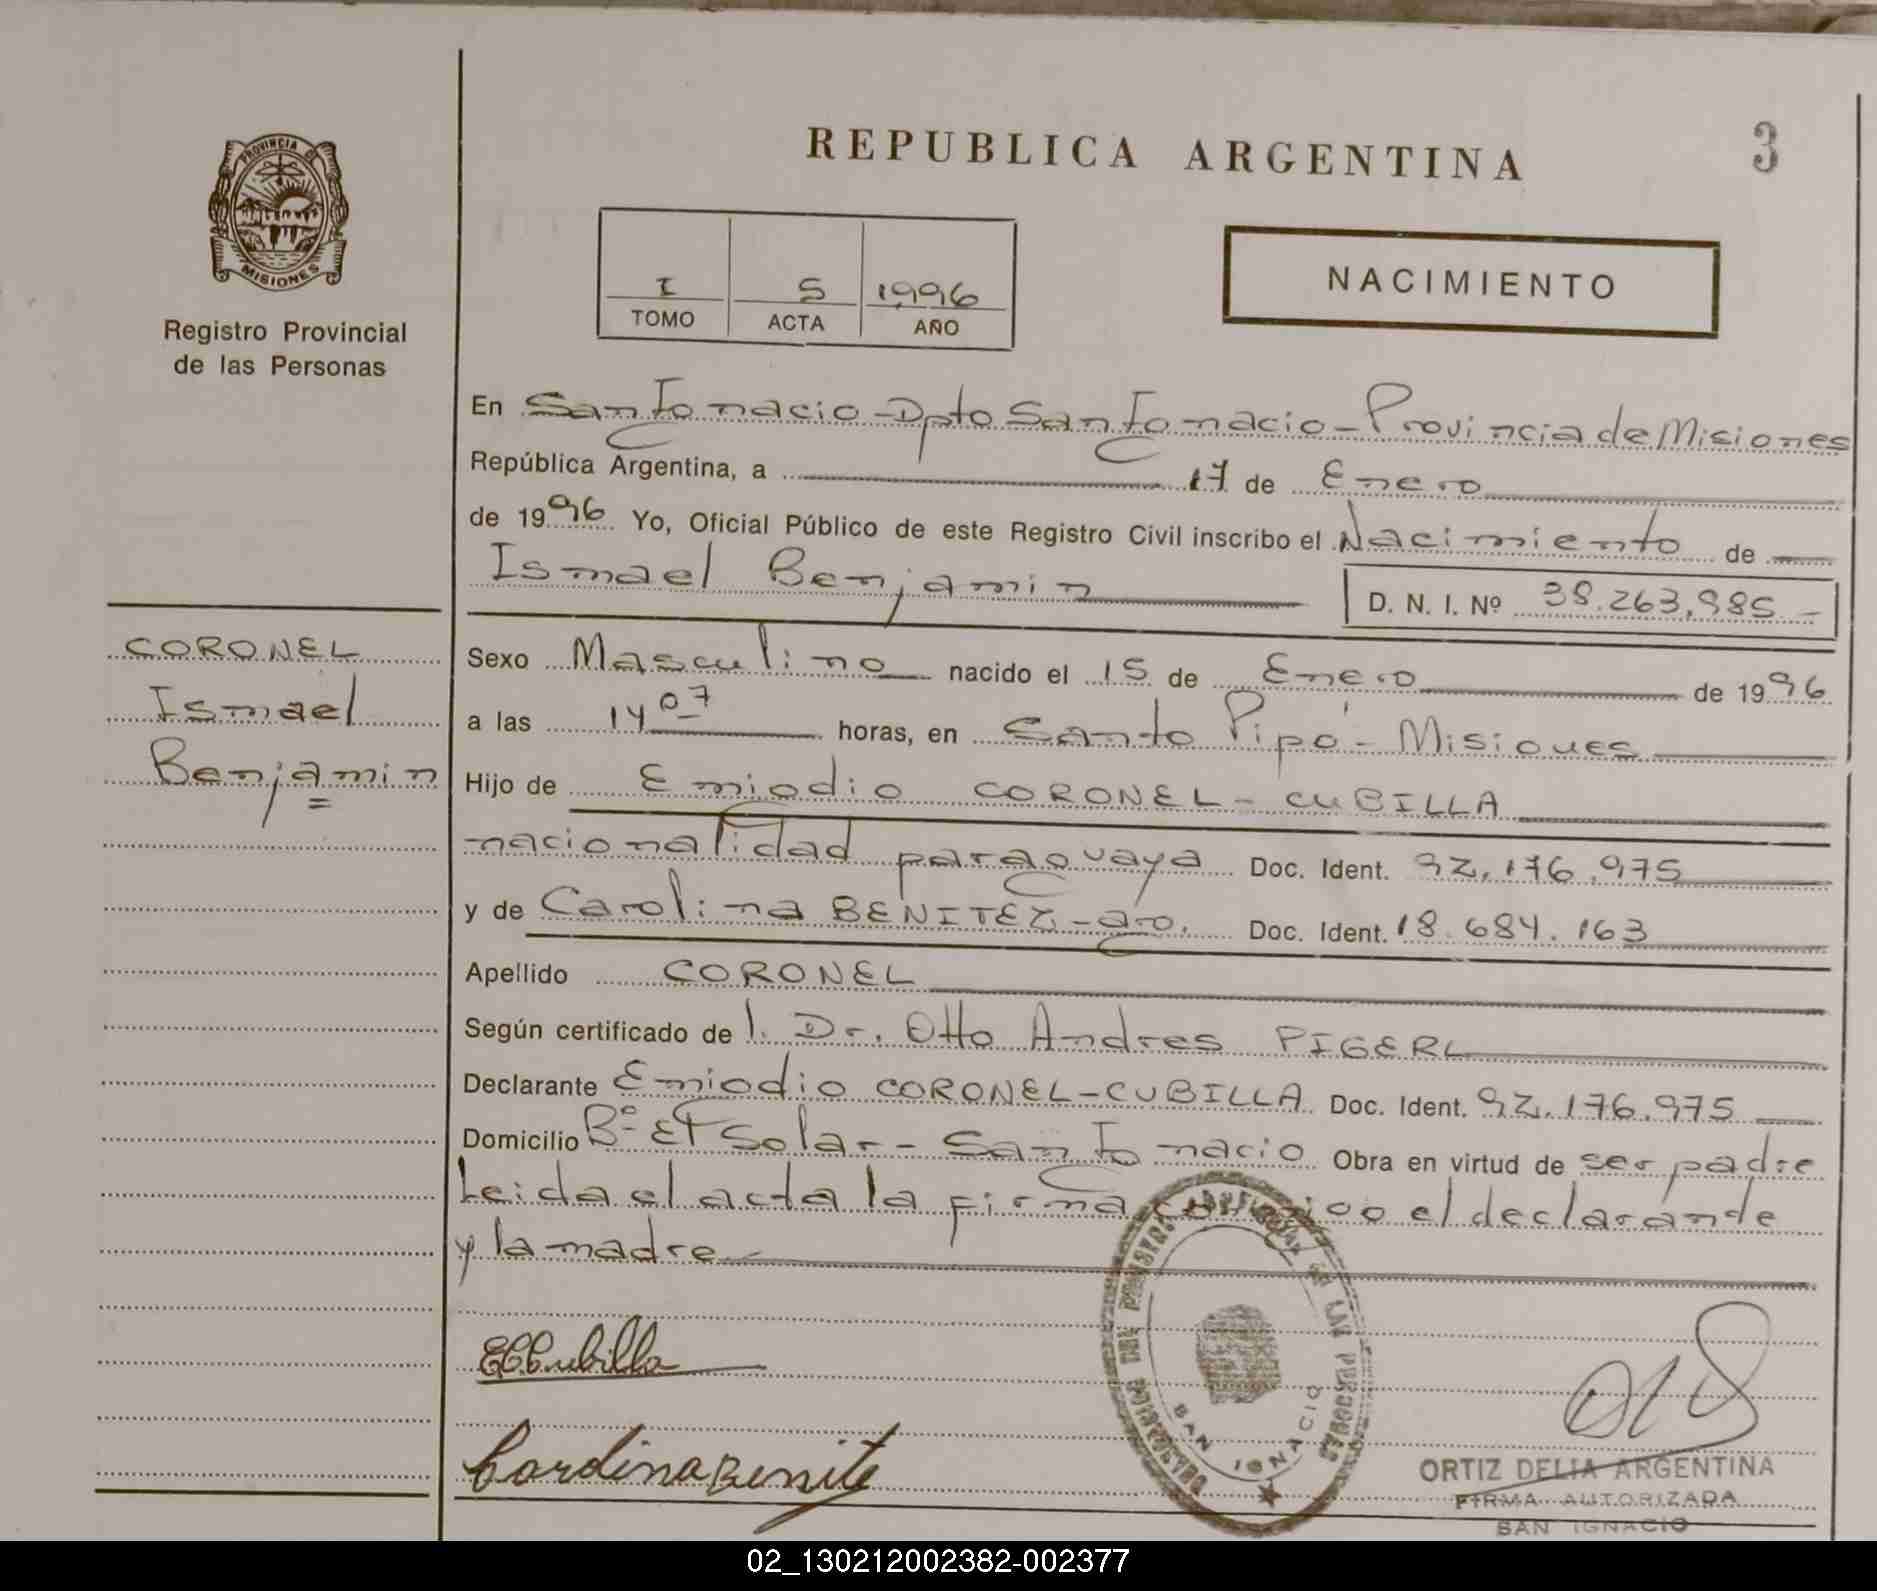 REPUBLICA ARGENTINA
3
PROVINCIA DE
MISIONES
Registro Provincial
de las Personas
I 5 1996
TOMO ACTA AÑO
NACIMIENTO
En San Ignacio - Dpto San Ignacio - Provincia de Misiones
República Argentina, a 17 de Enero
de 1996 Yo, Oficial Público de este Registro Civil inscribo el Nacimiento de
Ismael Benjamin D. N. I. Nº 38.263.985.-
CORONEL
Ismael
Benjamin
Sexo Masculino nacido el 15 de Enero de 1996
a las 14 07 horas, en Santo Pipó - Misiones
Hijo de Emigdio CORONEL - CUBILLA
nacionalidad paraguaya Doc. Ident. 92.176.975
y de Carolina BENITEZ - arg. Doc. Ident. 18.684.163
Apellido CORONEL
Según certificado de l. Dr. Otto Andres PIGERL
Declarante Emigdio CORONEL-CUBILLA Doc. Ident. 92.176.975
Domicilio Bº El Solar - San Ignacio Obra en virtud de ser padre
Leida el acta la firma conmigo el declarande
y la madre
SAN IGNACIO
ECCubilla
Carolina Benite
ORTIZ DELIA ARGENTINA
FIRMA AUTORIZADA
SAN IGNACIO
02_130212002382-002377